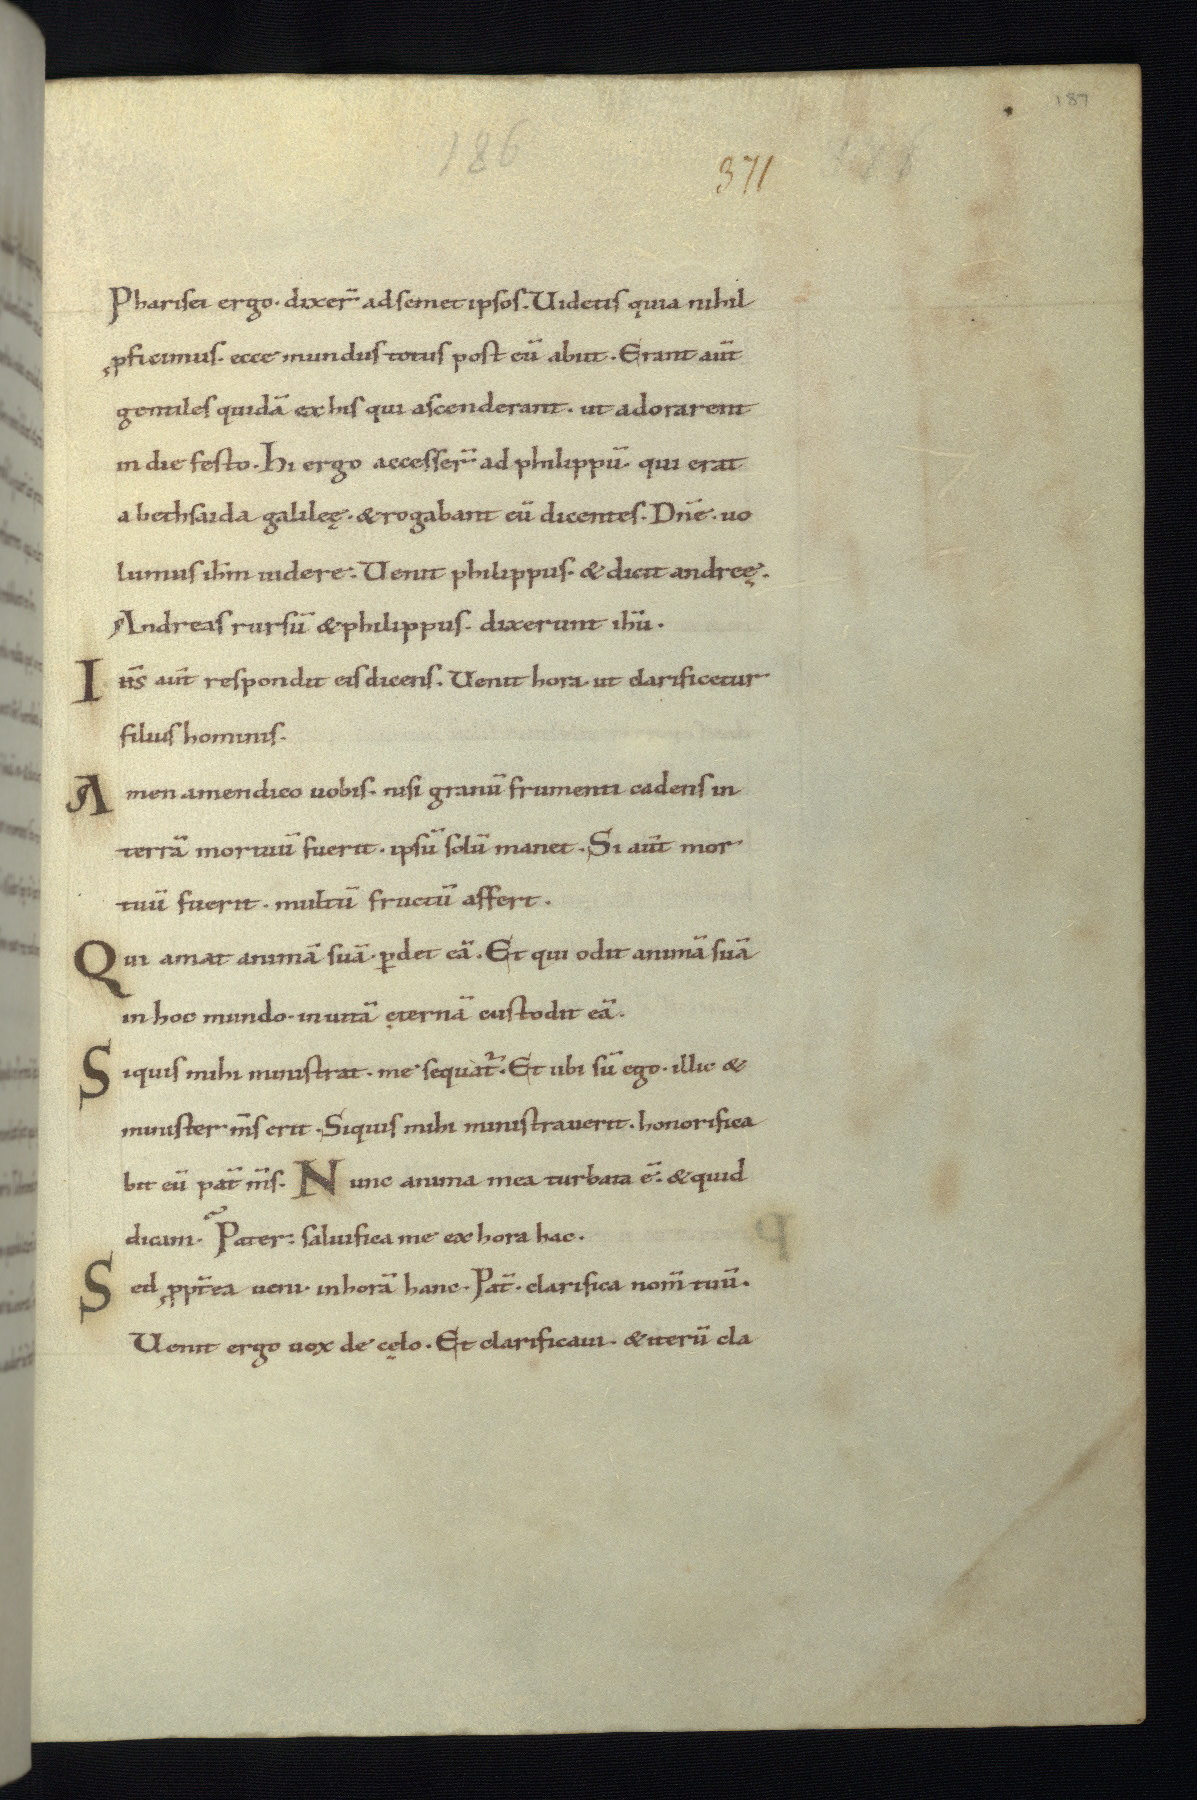 187
186
371
Pharisei ergo· dixer̄ ad semet ipsos. Videtis quia nihil
ꝓficimus· ecce mundus totus post eū abiit · Erant aut̄
gentiles quidā ex his qui ascenderant· ut adorarent
in die festo· Hi ergo accesser̄ ad philippū· qui erat
a bethsaida galileę· & rogabant eū dicentes· Dn̄e· uo
lumus ih̄m uidere· Venit philippus· & dicit andreę·
Andreas rursū & philippus· dixerunt ih̄u·
Iħs aut̄ respondit eis dicens· Venit hora· ut clarificetur
filius hominis·
Amen amen dico uobis· nisi granū frumenti cadens in
terrā mortuū fuerit· ipsū solū manet· Si aut̄ mor
tuū fuerit· multū fructū affert·
Qui amat animā suā· ꝑdet eā· Et qui odit animā suā
in hoc mundo· in uitā ęternā custodit eā·
Siquis mihi ministrat· me sequat᷑· Et ubi sū ego· illic &
minister m̄s erit· Siquis mihi ministrauerit· honorifica
bit eū pat̄ m̄s· Nunc anima mea turbata ē· & quid
dicam· Pater· saluifica me ex hora hac·
Sed ꝓpt̄ea ueni· in horā hanc· Pat̄· clarifica nom̄ tuū·
Venit ergo uox de cęlo· Et clarificaui· & iterū cla